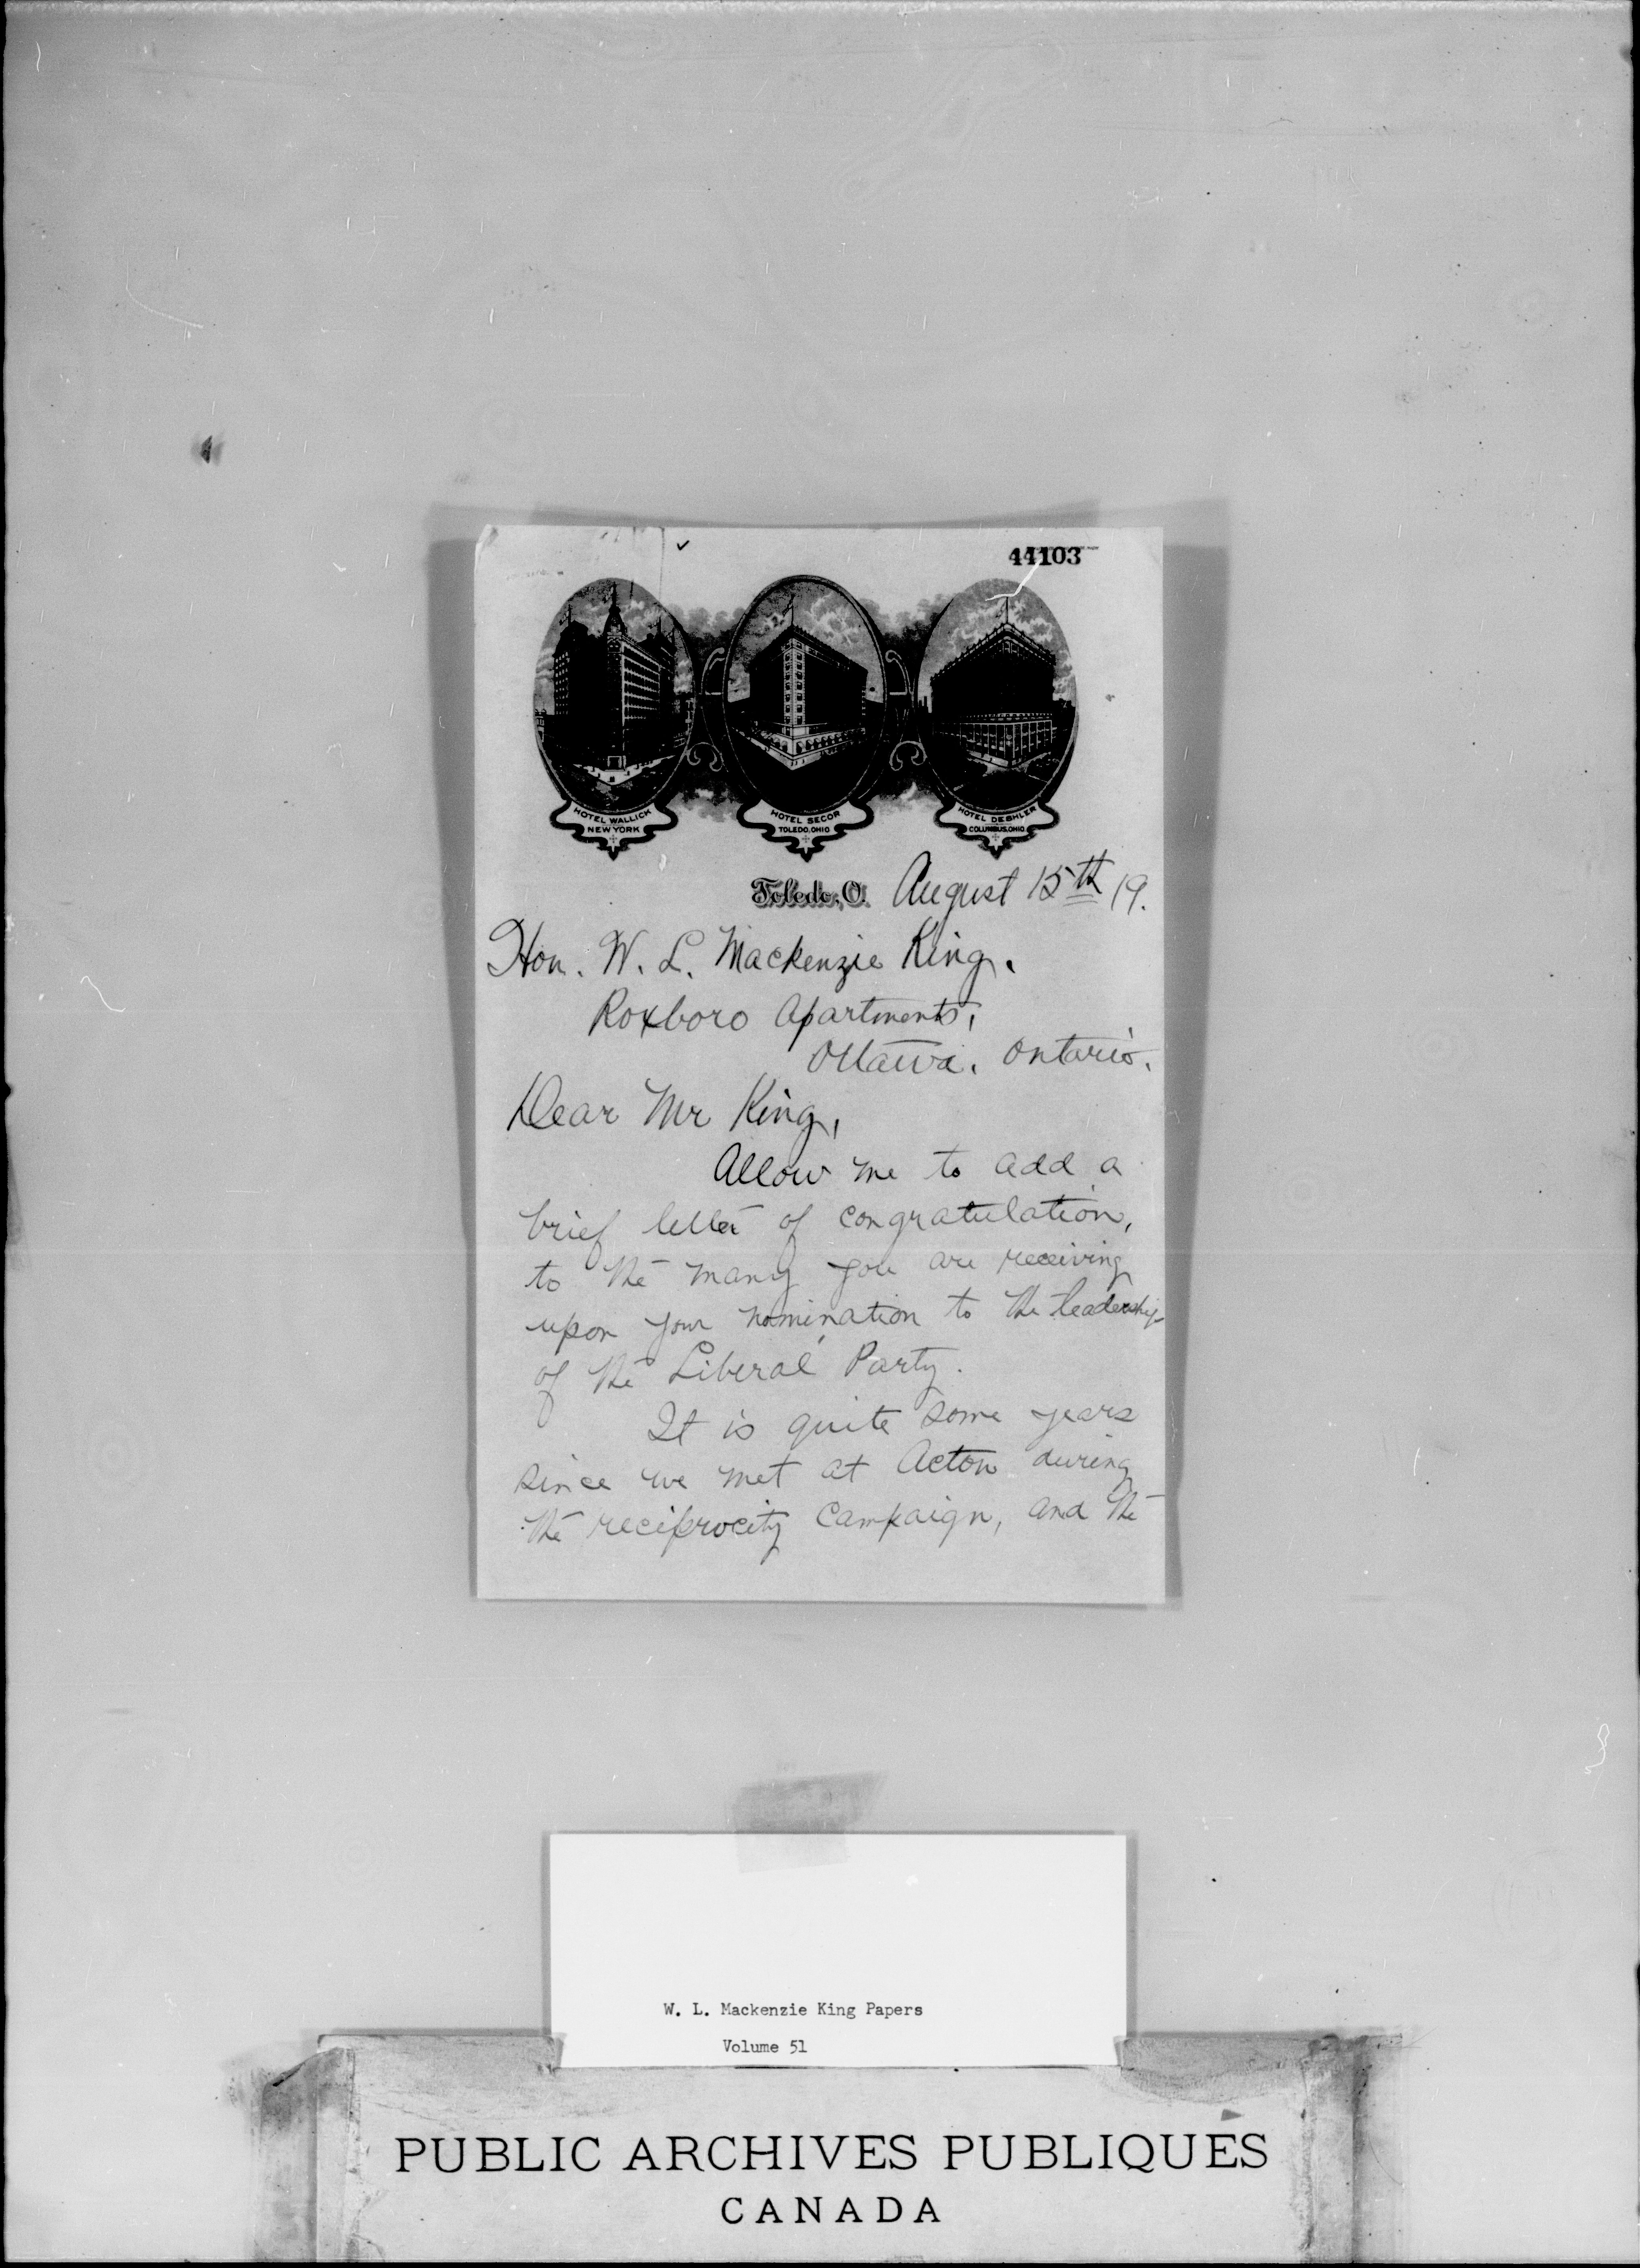 44103
HOTEL WALLICK
NEW YORK
HOTEL SECOR
TOLEDO, OHIO
HOTEL DESHLER
COLUMBUS, OHIO
Toledo, O. August 15th 19.
Hon. W. L. Mackenzie King.
Roxboro Apartments,
Ottawa. Ontario.
Dear Mr King,
Allow me to add a
brief letter of congratulation,
to the many you are receiving
upon your nomination to the leadership
of the Liberal Party.
It is quite some years
since we met at Acton during
the reciprocity campaign, and the
W. L. Mackenzie King Papers
Volume 51
PUBLIC ARCHIVES PUBLIQUES
CANADA